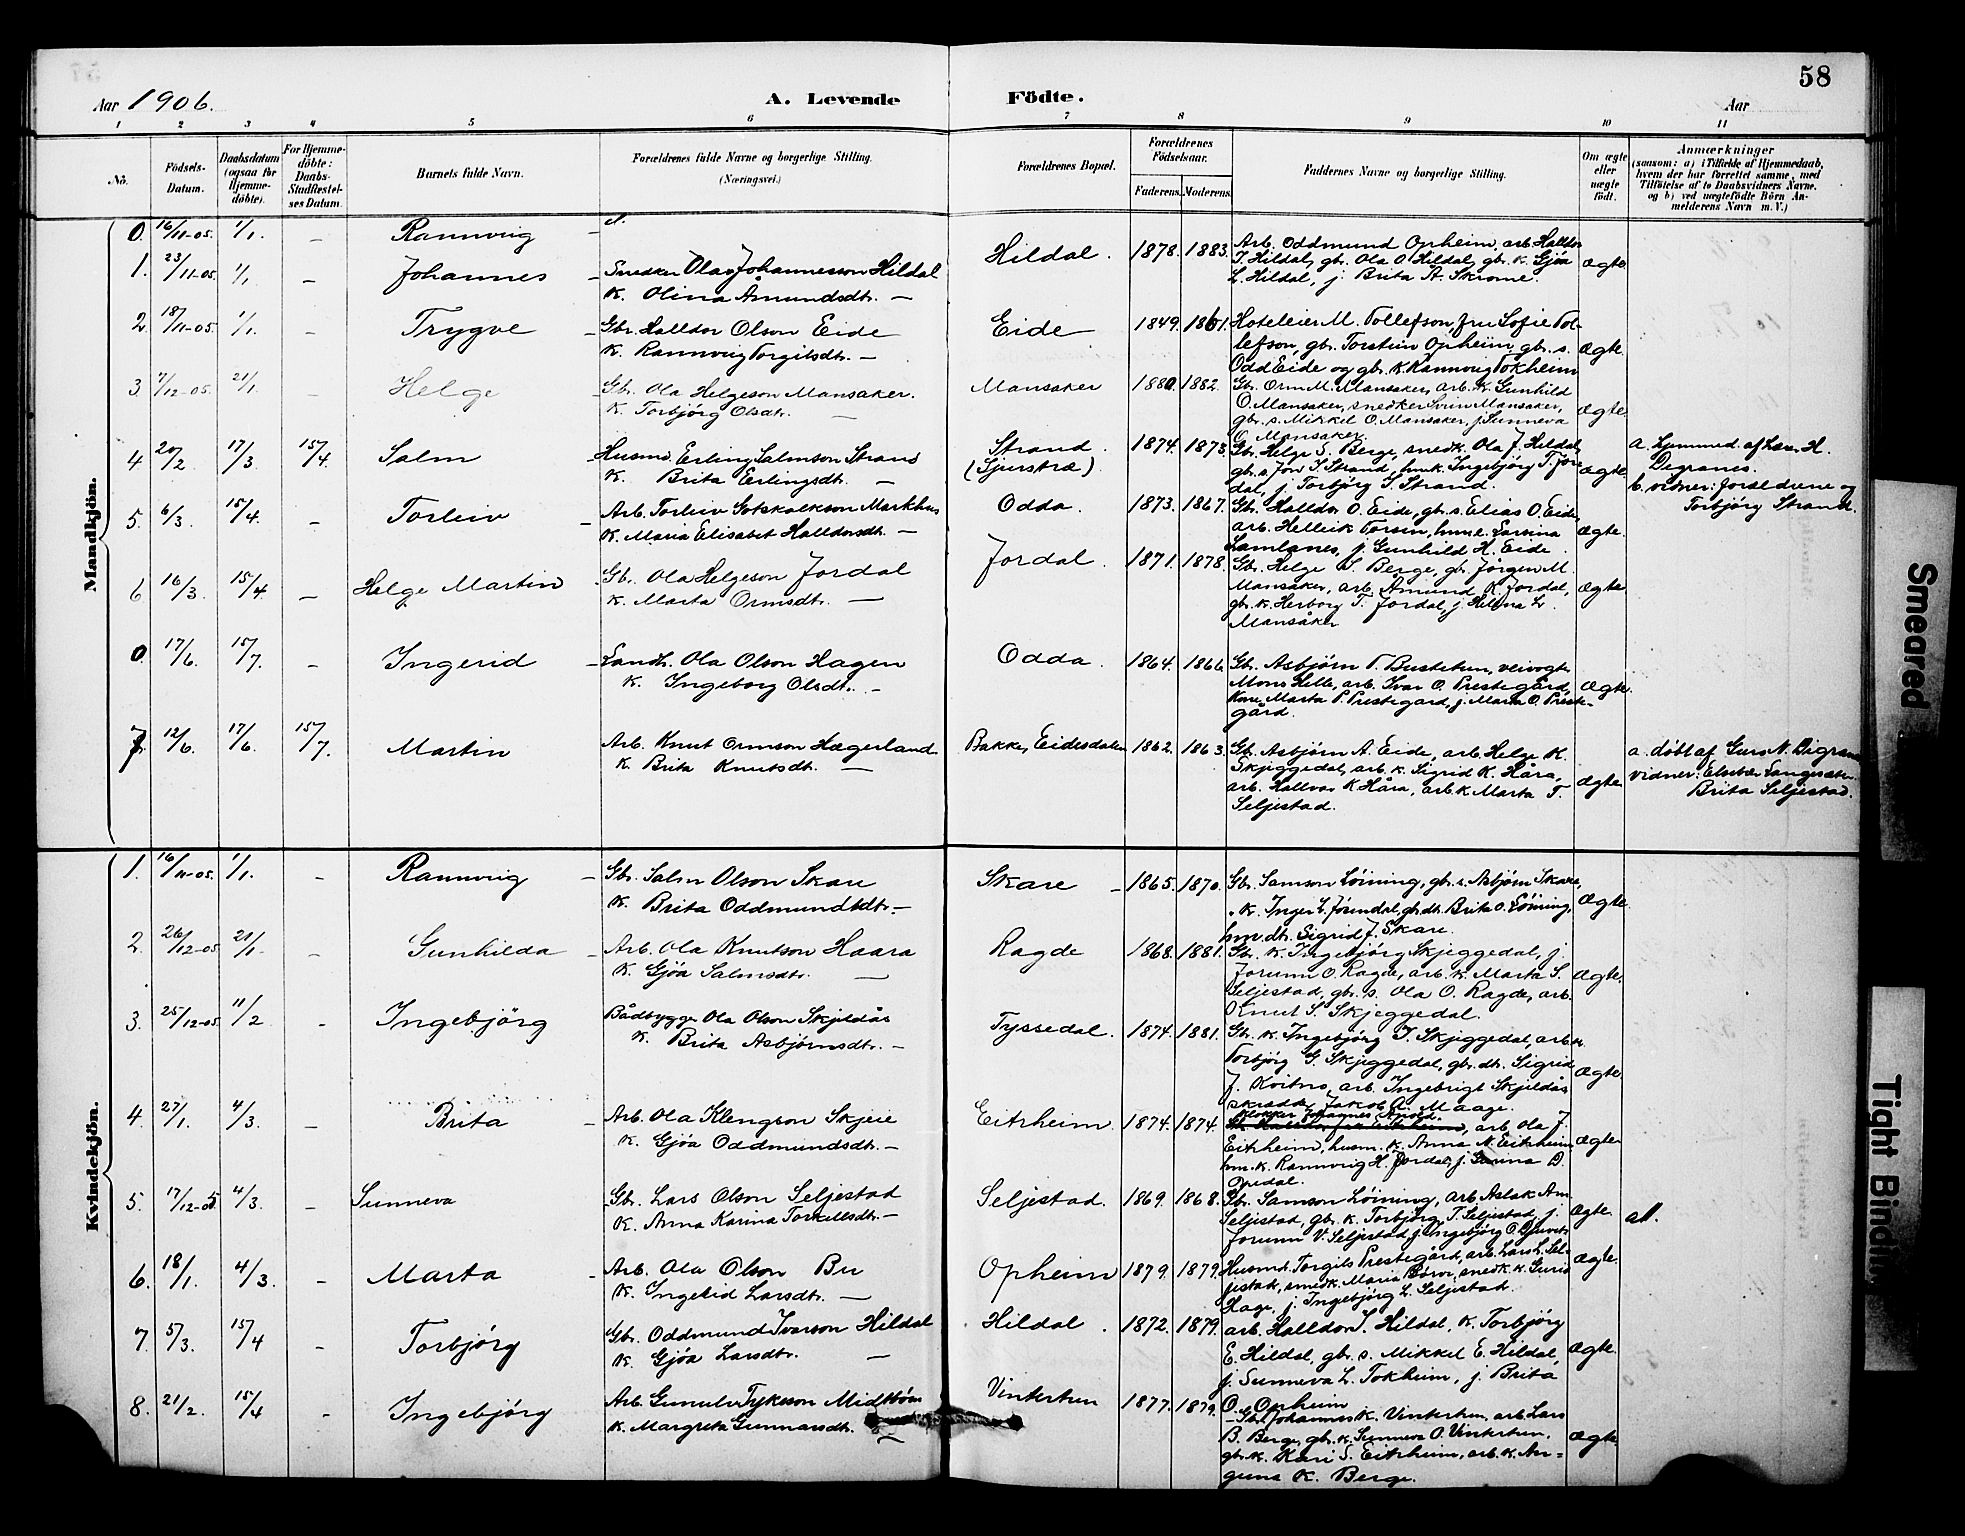 58
Aar 1906.
A. Levende Födte.
Aar
1 2 3 4 5 6 7 8 9 10 11
No.
Födsels-Datum.
Daabsdatum (ogsaa for Hjemme-döbte).
For Hjemme-döbte: Daabs-Stadfæstel-ses Datum.
Barnets fulde Navn.
Forældrenes fulde Navne og borgerlige Stilling.
(Næringsvei.)
Forældrenes Bopæl.
Forældrenes Födselsaar.
Faderens. Moderens.
Faddernes Navne og borgerlige Stilling.
Om ægte eller uægte födt.
Anmærkninger
(saasom: a) i Tilfælde af Hjemmedaab,
hvem der har forrettet samme, med
Tilföielse af to Daabsvidners Navne,
og b) ved uægtefödte Börn An-
melderens Navn m. V.)
Mandkjön.
0. 16/11-05. 1/1. – Rannveig
1. 23/11-05 1/1 – Johannes – Snedker Olav Johannesson Hildal
K. Olina Åmundsdtr. –
Hildal. 1878. 1883. Arb. Oddmund Opheim, arb. Halldor
I. Hildal, gbr. Ola O. Hildal, gbr. k. Gjøa
L. Hildal, j. Brita A. Skrome. ægte
2. 18/11-05. 1/1 – Trygve – Gbr. Halldor Olson Eide
K. Rannveig Torgilsdtr. –
Eide 1849. 1861. Hoteleier M. Tollefson, fru Sofie Tol-
lefson, gbr. Torstein Opheim, gbr. s.
Odd Eide og gbr. k. Rannveig Tokheim ægte.
3. 7/12-05. 21/1. – Helge – Gbr. Ola Helgeson Mansaker.
K. Torbjörg Olsdtr. –
Mansaker 1880. 1882. Gbr. Orm M. Mansaker, arb. k. Gunhild
O. Mansaker, snedker Svein Mansaker,
gbr. s. Mikkel O. Mansaker, j. Sunneva
O. Mansaker. ægte.
4 20/2 17/3 15/4. Salm – Husmd. Erling Salmson Strand
K. Brita Erlingsdtr. –
Strand (Sjurstræ). 1874. 1873. Gbr. Helge S. Berge, snedk. Ola J. Hildal,
gbr. s. Jon S. Strand, hmk. Ingebjörg T. Jor-
dal, j. Torbjörg S. Strand. ægte
a. hjemmed. af Lars H.
Digranes.
b. vidner: forældrene og
Torbjörg Strand.
5. 6/3. 15/4. – Torleiv – Arb. Torleiv Gotskalkson Markhus
K. Maria Elisabet Halldorsdtr. –
Odda. 1873. 1867. Gbr. Halldor O. Eide, gbr. s. Elias O. Eide,
arb. Helleik
j. Gunhild H. Eide. ægte.
6 16/3 15/4. – Helge Martin Gbr. Ola Helgeson Jordal
K. Marta Ormsdtr. –
Jordal. 1871. 1878. Gbr. Helge S. Berge, gbr. Jörgen M.
Mansaker, arb. Åmund K. Jordal,
gbr. k. Herborg T. Jordal, j. Helena L.
Mansåker ægte
0. 17/6. 15/7. – Ingerid – Landh. Ola Olson Hagen
K. Ingeborg Olsdtr. –
Odda. 1864. 1866. Gbr. Asbjörn T. Bustetun, veivogter
Mons Helle, arb. Ivar O. Prestegård,
Kone Marta P. Prestegard, j. Marta O. Preste-
gård. ægte.
7. 12/6. 17/6. 15/7. Martin Arb. Knut Ormson Hægerland
K. Brita Knutsdtr. –
Bakke, Eidesdalen 1862. 1863. Gbr. Asbjörn A. Eide, arb. Helge K.
Skjeggedal, arb. k. Sigrid K. Håra,
arb. Hallvor K Håra, arb. k. Marta T.
Seljestad. ægte
a. döbt af Guro N. Digranes
vidner: Elsebe Langesæter
Brita Seljestad.
Kvindekjön.
1. 16/11-05. 1/1. – Rannveig – Gbr. Salm Olson Skare
K. Brita Oddmundsdtr. –
Skare – 1865. 1870. Gbr. Samson Löining, gbr. s. Asbjörn Skare,
" K. Inger L. Jösendal, gb. dt. Brita O. Löining,
hm. dtr. Sigrid J. Skare. ægte.
2. 26/12-05 21/1. – Gunhilda – Arb. Ola Knutson Haara
K. Gjøa Salmsdtr. –
Ragde 1868. 1881. Gbr. k. Ingebjörg Skjeggedal, j.
Jorunn O. Ragde, arb. k. Marta S.
Seljestad, gbr. s. Ola O. Ragde, arb.
Knut S. Skjeggedal. ægte
3. 25/12-05. 11/2 – Ingebjörg Bådbygger Ola Olson Skjeldås
K. Brita Asbjörnsdtr. –
Tyssedal. 1874. 1881. Gbr. k. Ingebjörg T. Skjeggedal, arb. k.
Torbjörg G. Skjeggedal, gbr. dtr. Sigrid
J. Kvitno, arb. Ingebrigt Skjeldås
skrædder Jakob A. Maage. ægte.
4. 27/1. 4/3. – Brita Arb. Ola Klengson Skjeie
K. Gjøa Oddmundsdtr. –
Eitrheim 1874. 1874. Klokker Johannes Apold.
arb. Ola J.
Eitrheim, husm. k. Anna N. Eitrheim
hm. k. Rannveig H. Jordal, j.
Opedal. ægte
5. 17/12-05 4/3. – Sunneva Gbr. Lars Olson Seljestad
K. Anna Karina Torkellsdtr. –
Seljestad. 1869. 1868. Gbr. Samson Löining, arb. Aslak Am.
Seljestad, gbr. k. Torbjörg T. Seljestad, j.
Jorunn V. Seljestad, j. Ingebjörg O. ægte.
6. 18/1. 4/3. – Marta – Arb. Ola Olson Bu
K. Ingerid Larsdtr. –
Opheim 1879. 1879. Husmd. Torgils Prestegård, arb. Lars L. Sel-
jestad, snedk. Maria snedk. k. Gurid
Hage, j. Ingebjörg L. Seljestad. ægte.
7. 5/3. 15/4 – Torbjörg Gbr. Oddmund Ivarson Hildal
K. Gjøa Larsdtr. –
Hildal. 1872. 1879. arb. Halldor I. Hildal, K. Torbjörg
E. Hildal, gbr. s. Mikkel E. Hildal,
j. Sunneva L. Tokheim, j. Brita
O. Opheim ægte.
8. 21/2. 15/4 – Ingebjörg Arb. Gunulv Tykeson
K. Margreta Gunnarsdtr. –
Vintertun 1877. 1879. – Gbr. Johannes K. Vintertun, arb. Lars
B. Berge, gbr. k. Sunneva O. Vintertun,
gbr. k. Kari S. Eitrheim, arb. k. An-
guna K. Berge. ægte
Smeared
Tight Binding